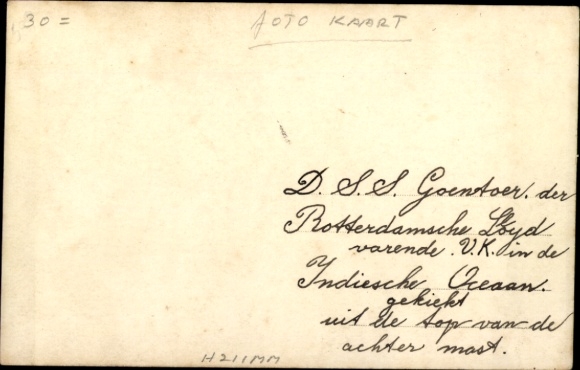 30 =
FOTO KAART
D. S. S. Goentoer. der
Rotterdamsche Lloyd
varende. V.K. in de
Indiesche Oceaan.
gekiekt
uit de top van de
achter mast.
H211MM